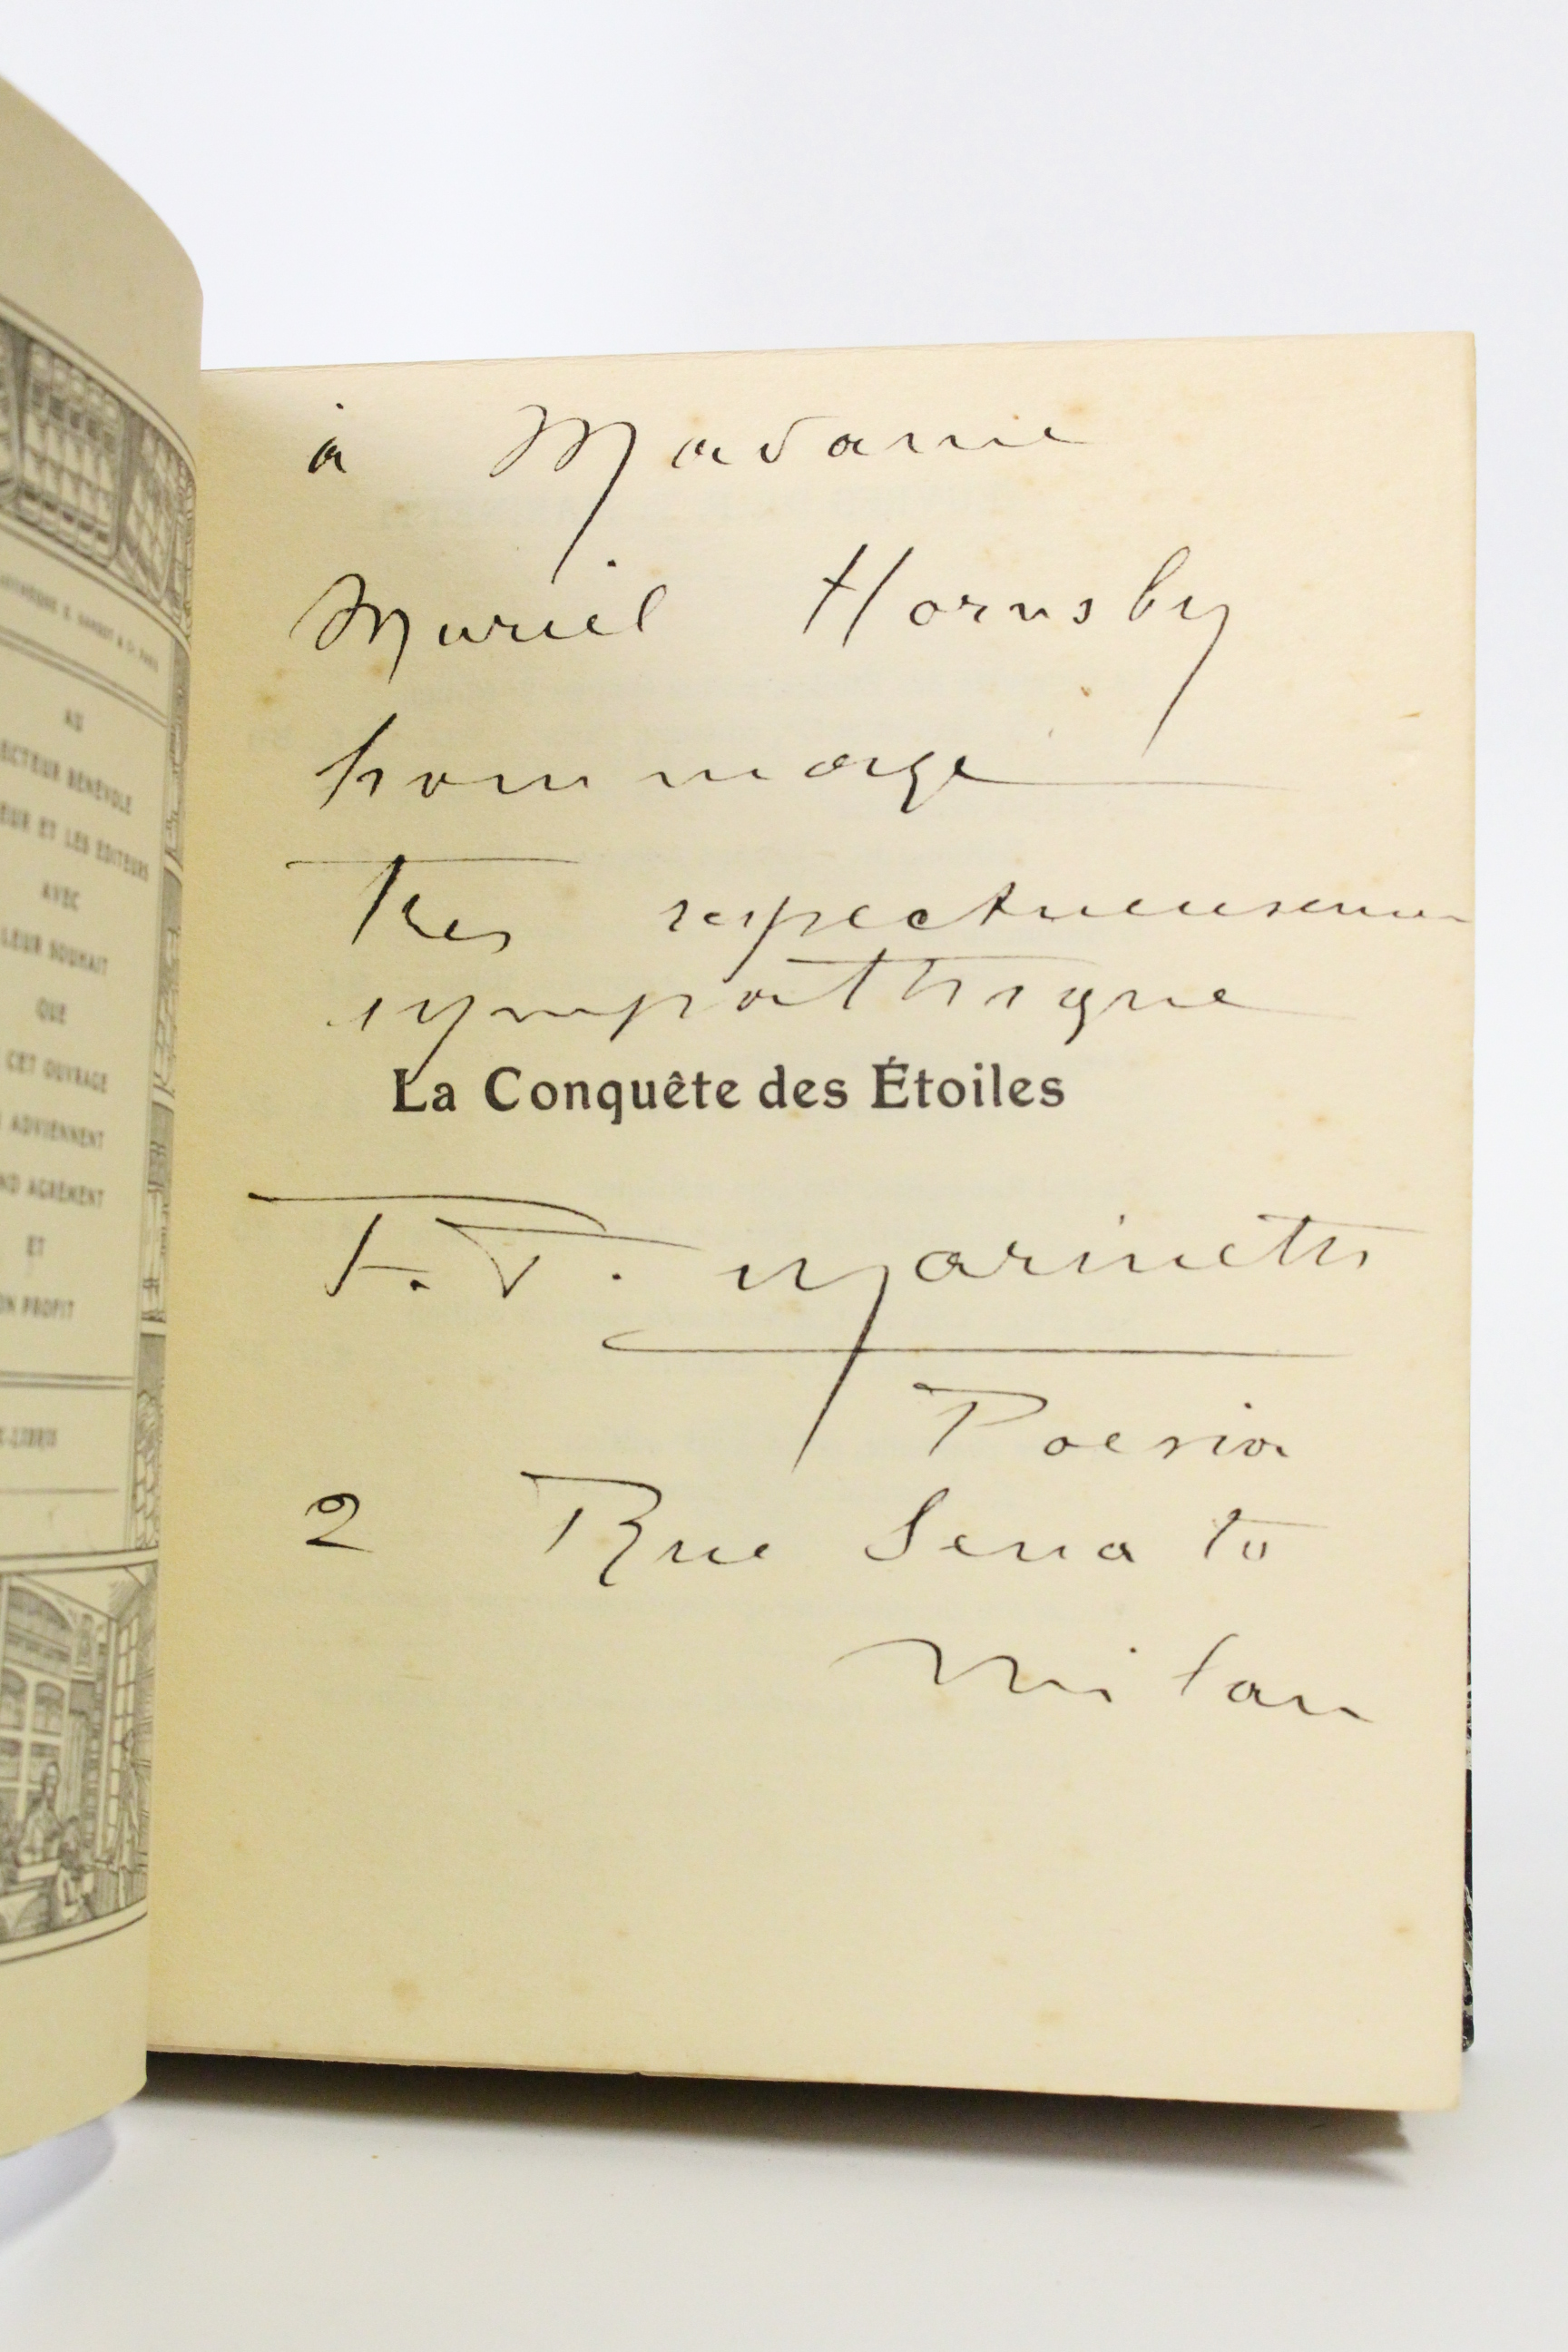 AU
ECTEUR BÉNÉVOLE
EUR ET LES ÉDITEURS
AVEC
LEUR SOUHAIT
QUE
CET OUVRAGE
ADVIENNENT
ND AGRÉMENT
ET
ON PROFIT
X-LIBRIS
à Madame
Muriel Hornsby
hommage
Très respectueusemen
sympathique
La Conquête des Étoiles
F. T. Marinetti
Poesia
2 Rue Senato
Milan